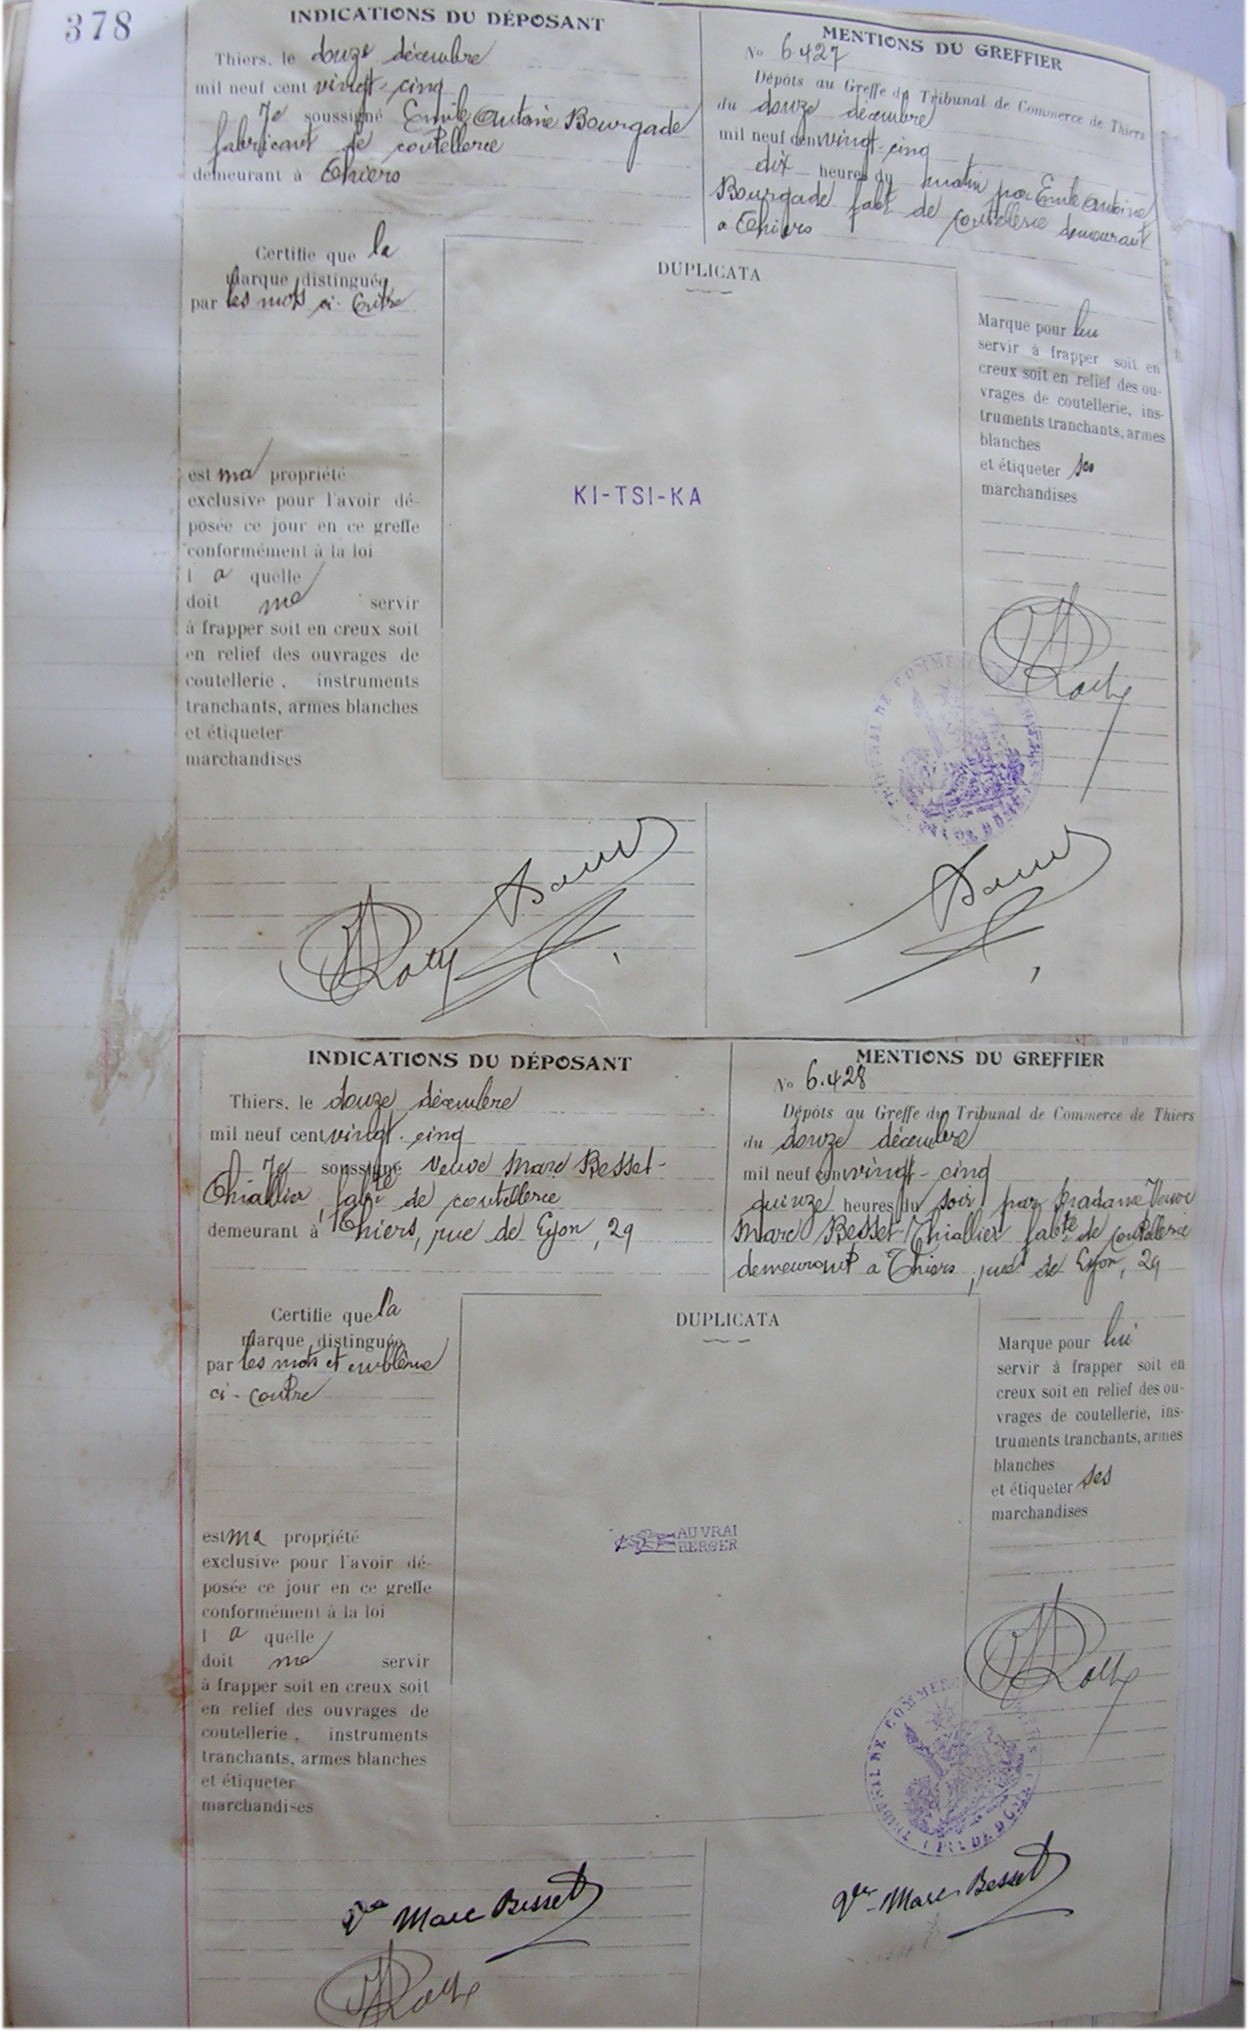 378
INDICATIONS DU DÉPOSANT
Thiers, le douze décembre
mil neuf cent vingt-cinq
Je soussigné Emile Antoine Bourgade
fabricant de coutellerie
demeurant à Thiers
MENTIONS DU GREFFIER
No 6.427
Dépôts au Greffe du Tribunal de Commerce de Thiers
du douze décembre
mil neuf cent vingt-cinq
dix heures du matin par Emile Antoine
Bourgade fabt de coutellerie demeurant
a Thiers
Certifie que la
marque distinguée
par les mots ci-contre
est ma propriété
exclusive pour l'avoir dé-
posée ce jour en ce greffe
conformément à la loi
l a quelle
doit me servir
à frapper soit en creux soit
en relief des ouvrages de
coutellerie, instruments
tranchants, armes blanches
et étiqueter
marchandises
DUPLICATA
KI-TSI-KA
Marque pour lui
servir à frapper soit en
creux soit en relief des ou-
vrages de coutellerie, ins-
truments tranchants, armes
blanches
et étiqueter ses
marchandises
TRIBUNAL DE COMMERCE
INDICATIONS DU DÉPOSANT
Thiers, le douze décembre
mil neuf cent vingt-cinq
Je soussigné Veuve Marc Besset-
Chiallier, fabte de coutellerie
demeurant à Thiers, rue de Lyon, 29
MENTIONS DU GREFFIER
No 6.428
Dépôts au Greffe du Tribunal de Commerce de Thiers
du douze décembre
mil neuf cent vingt-cinq
quinze heures du soir par Madame Veuve
Marc Besset-Chiallier fabte de coutellerie
demeurant a Thiers, rue de Lyon, 29
Certifie que la
marque distinguée
par les mots et emblême
ci-contre
est ma propriété
exclusive pour l'avoir dé-
posée ce jour en ce greffe
conformément à la loi
l a quelle
doit me servir
à frapper soit en creux soit
en relief des ouvrages de
coutellerie, instruments
tranchants, armes blanches
et étiqueter
marchandises
DUPLICATA
AU VRAI
BERGER
Marque pour lui
servir à frapper soit en
creux soit en relief des ou-
vrages de coutellerie, ins-
truments tranchants, armes
blanches
et étiqueter ses
marchandises
TRIBUNAL DE COMMERCE
Vve Marc Besset
Vve Marc Besset